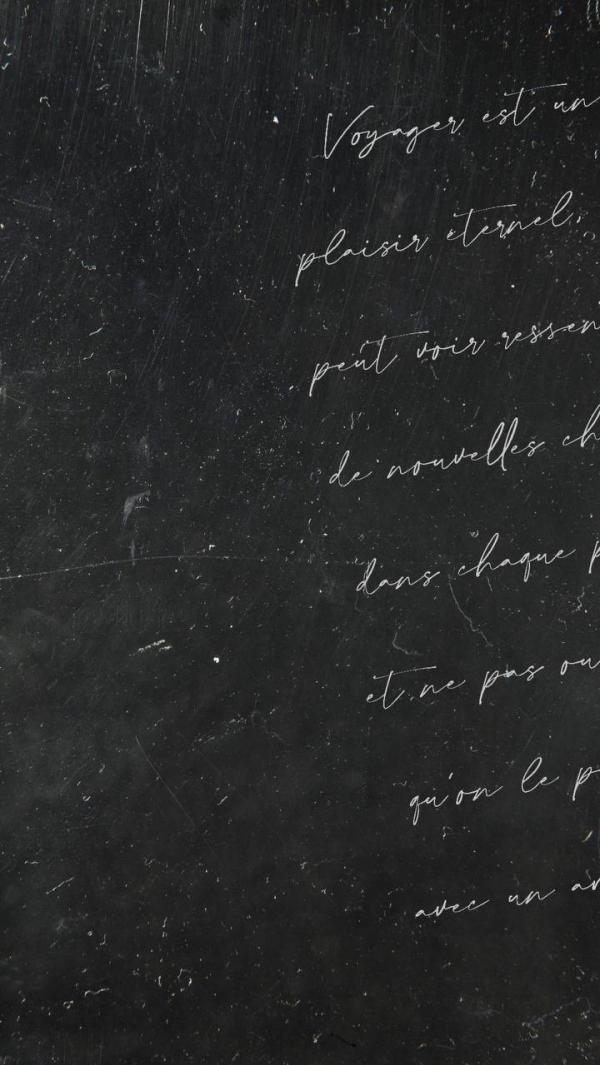 Voyager est un
plaisir éternel,
peut voir ressen
de nouvelles ch
dans chaque p
et ne pas ou
qu'on le p
avec un an